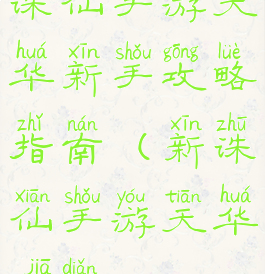 诛仙手游天
huá xīn shǒu gōng lüè
华新手攻略
zhǐ nán xīn zhū
指南(新诛
xiān shǒu yóu tiān huá
仙手游天华
jiā diǎn